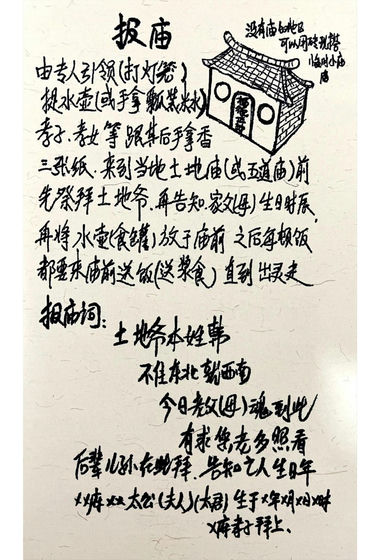 报庙
没有庙的地区
可以用砖现搭
临时小庙
由专人引领(打灯笼)
提水壶(或手拿瓢装水)
孝子、孝女等跟其后手拿香
三张纸.来到当地土地庙(或五道庙)前
先祭拜土地爷.再告知.家父(母)生日时辰,
再将水壶(食罐)放于庙前之后每顿饭
都要来庙前送饭(送浆食)直到出灵走
报庙词:
土地爷本姓韩
不住东北就西南
今日老父(母)魂到此
有求您老多照看
后辈儿孙在此拜.告知亡人生日年
xx病xx太公(夫人)(太君)生于x年x月x日x时
x病孝子拜上.